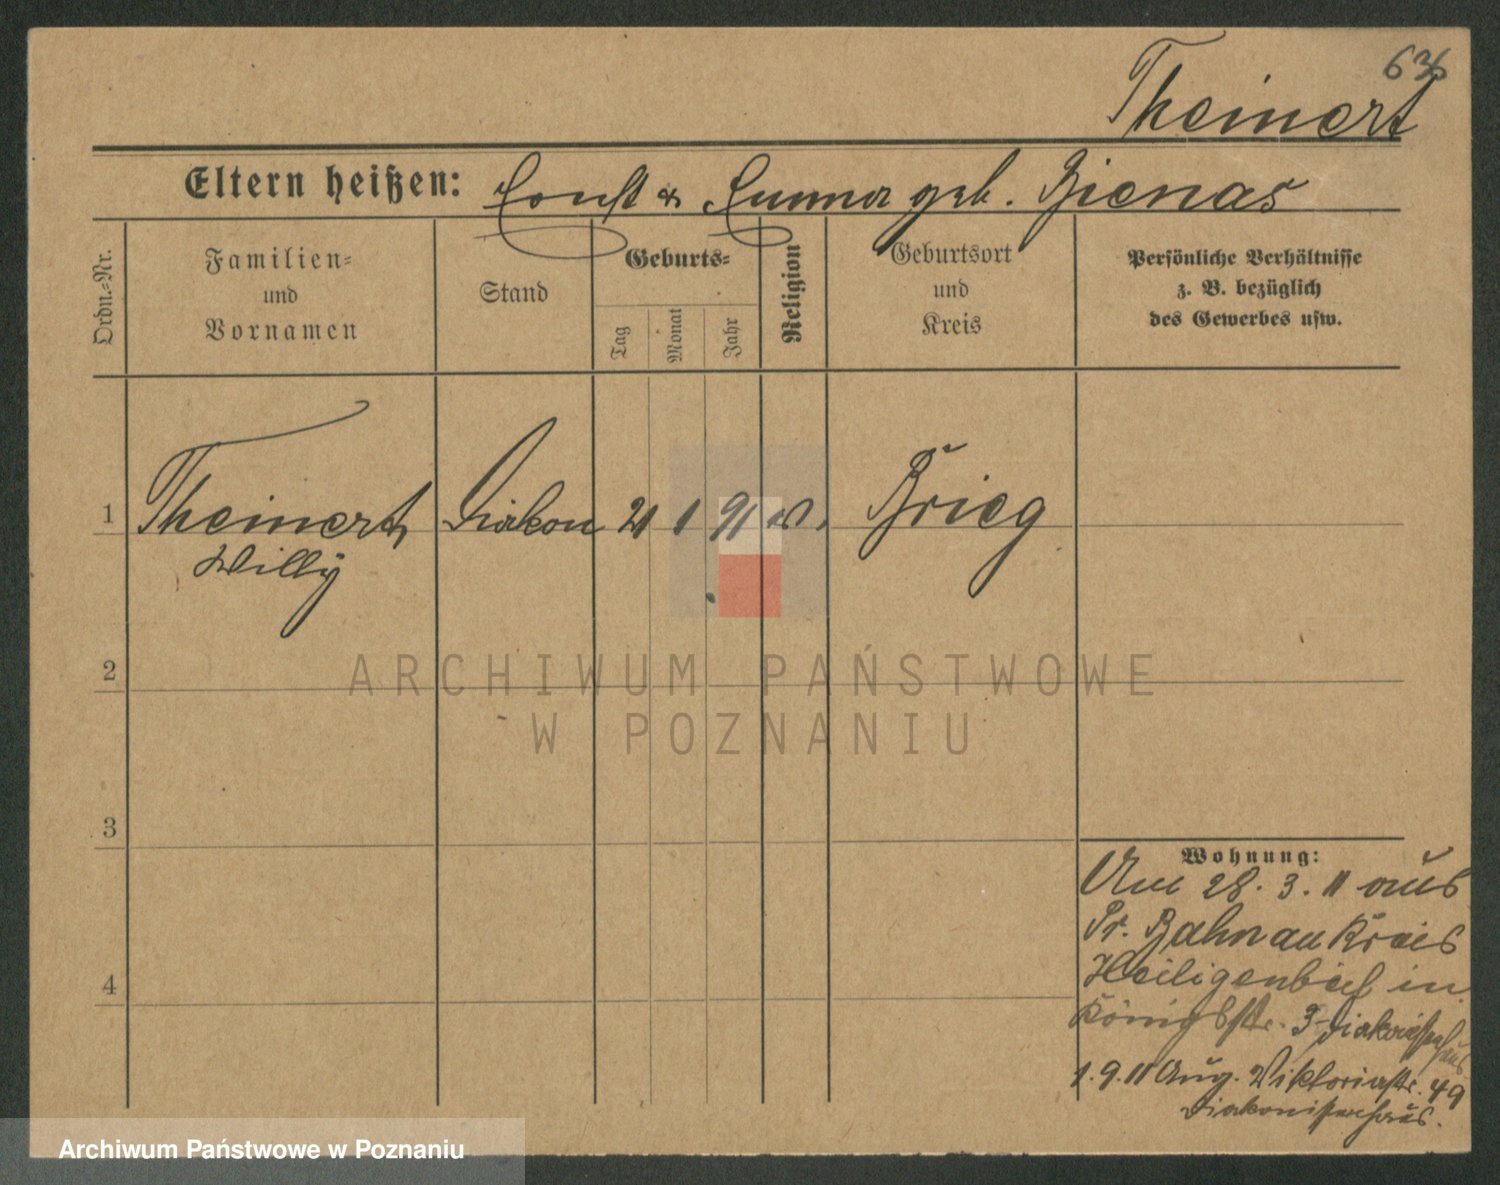 636
Theinert
Eltern heißen: Ernst & Emma geb. Bienas
Ordn.-Nr.
Familien-
und
Vornamen
Stand
Geburts-
Tag
Monat
Jahr
Religion
Geburtsort
und
Kreis
Persönliche Verhältnisse
z. B. bezüglich
des Gewerbes usw.
1 Theinert, Diakon 21 1 91 ev. Brieg
Willy
2
ARCHIWUM PAŃSTWOWE
W POZNANIU
3
Wohnung:
Am 28. 3. 11 aus
Pr. Bahnau Kreis
Heiligenbeil in
4
Königstr. Diakonissenhaus
1. 9. 11 Aug. Viktoriastr. 49
Diakonissenhaus.
Archiwum Państwowe w Poznaniu